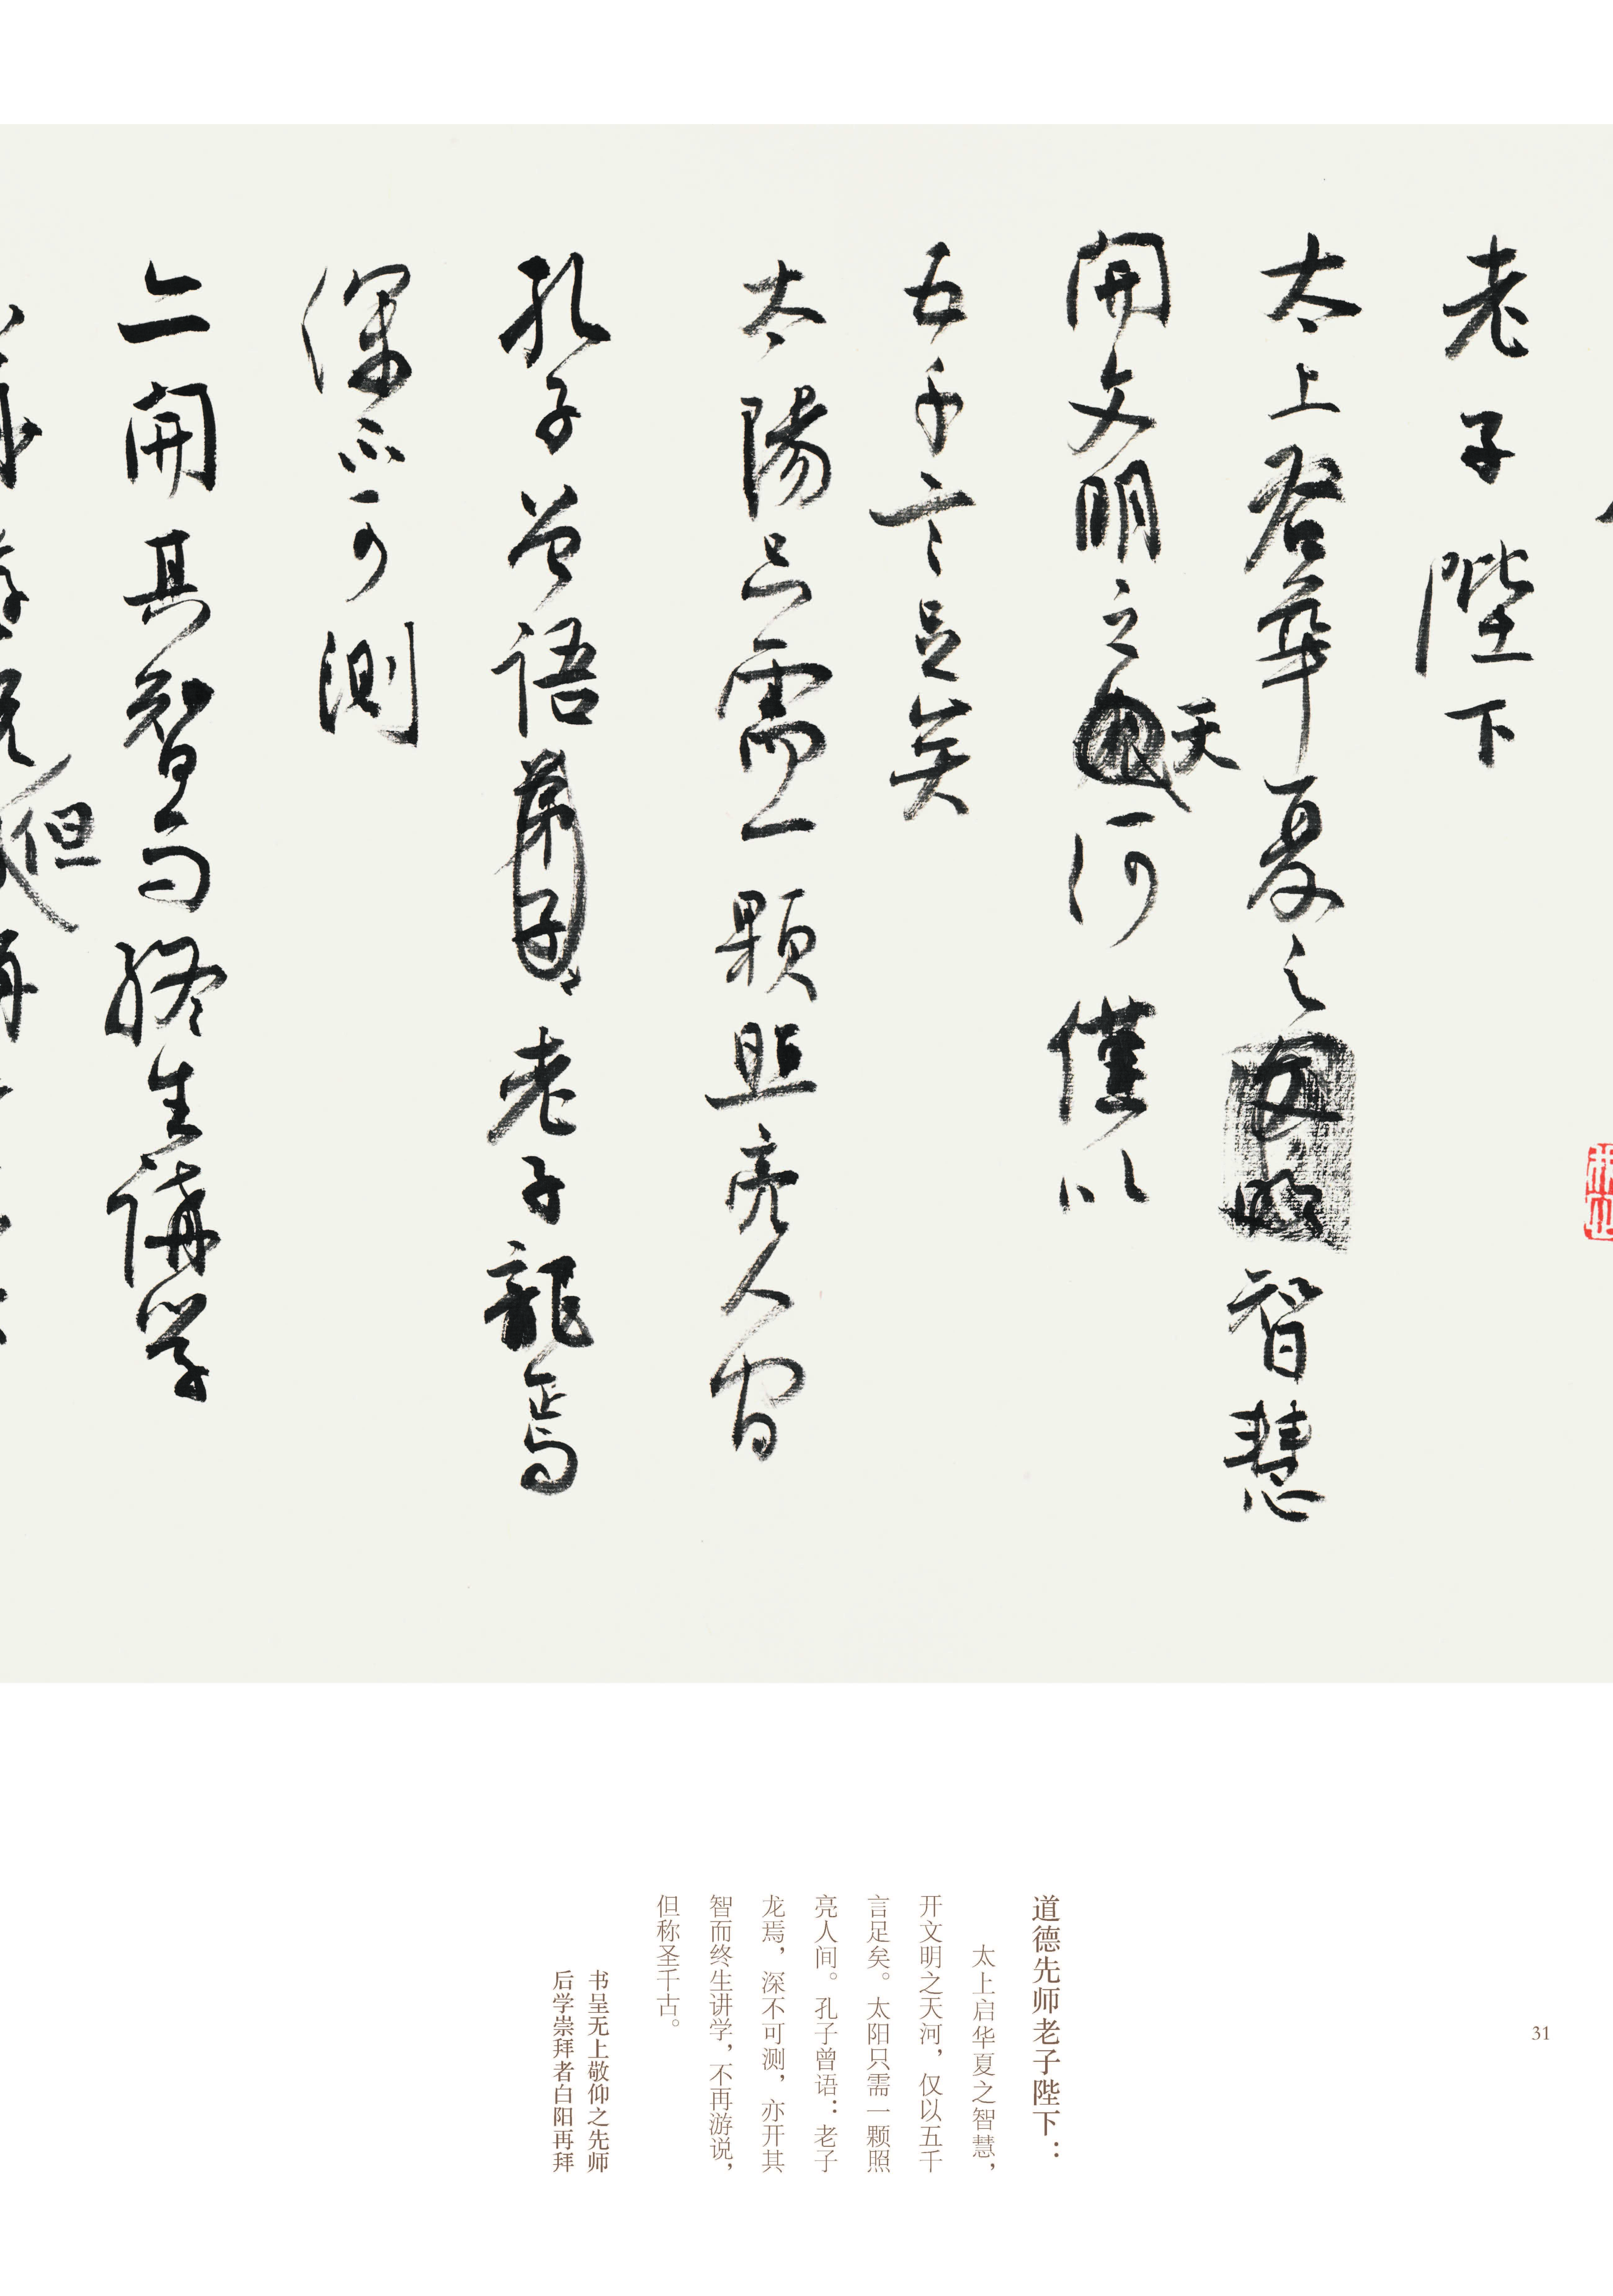 老子陛下
太上啓華夏之智慧
開文明之天河僅以
五千言足矣
太陽只需一顆照亮人间
孔子曾语老子龍焉
深不可测
亦開其智而终生講学
但
道德先师老子陛下：
太上启华夏之智慧，
开文明之天河，仅以五千
言足矣。太阳只需一颗照
亮人间。孔子曾语：老子
龙焉，深不可测，亦开其
智而终生讲学，不再游说，
但称圣千古。
书呈无上敬仰之先师
后学崇拜者白阳再拜
31